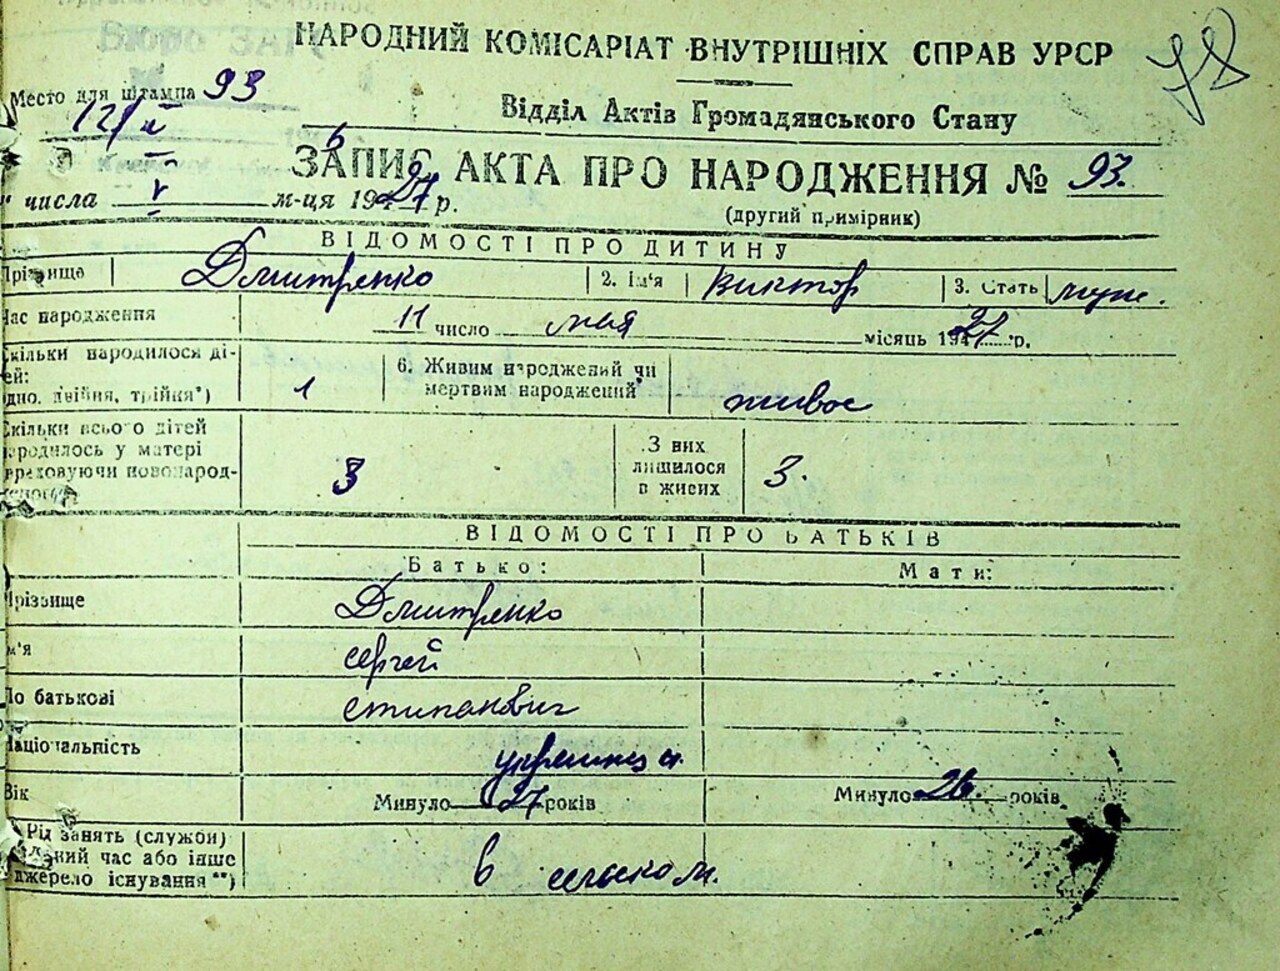 НАРОДНИЙ КОМІСАРІАТ ВНУТРІШНІХ СПРАВ УРСР
Место для штампа 93
Відділ Актів Громадянського Стану
ЗАПИС АКТА ПРО НАРОДЖЕННЯ № 93.
числа V м-ця 1927 р.
(другий примірник)
ВІДОМОСТІ ПРО ДИТИНУ
Прізвище Дмитренко 2. Ім'я Виктор 3. Стать муж.
Час народження 11 число мая місяць 1927 р.
Скільки народилося ді-
ей:
одно, двійня, трійня*) 1 6. Живим народжений чи
мертвим народжений живое
Скільки всього дітей
народилось у матері
враховуючи новонарод-
3 З них
лишилося
в живих 3.
ВІДОМОСТІ ПРО БАТЬКІВ
Батько: Мати:
Прізвище Дмитренко
м'я Сергей
По батькові Стипанович
Національність
Вік Минуло 27 років Минуло 26. років
Рід занять (служби)
даний час або інше
джерело існування **) в